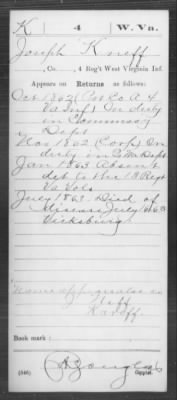 K 4 W. Va.
Joseph Kneff
, Co. , 4 Reg't West Virginia Inf.
Appears on Returns as follows:
Oct 1862 (Pvt Co A 4
Va Inf) On duty
in Commissary
Dept
Nov 1862 (Corp) On
duty in Dept
Jan 1863 Absent
det to the 13 Regt
Va Vols
July 1863. Died of
July 16
Vicksburg.
Name appears also as
Book mark:
(546) Copyist.